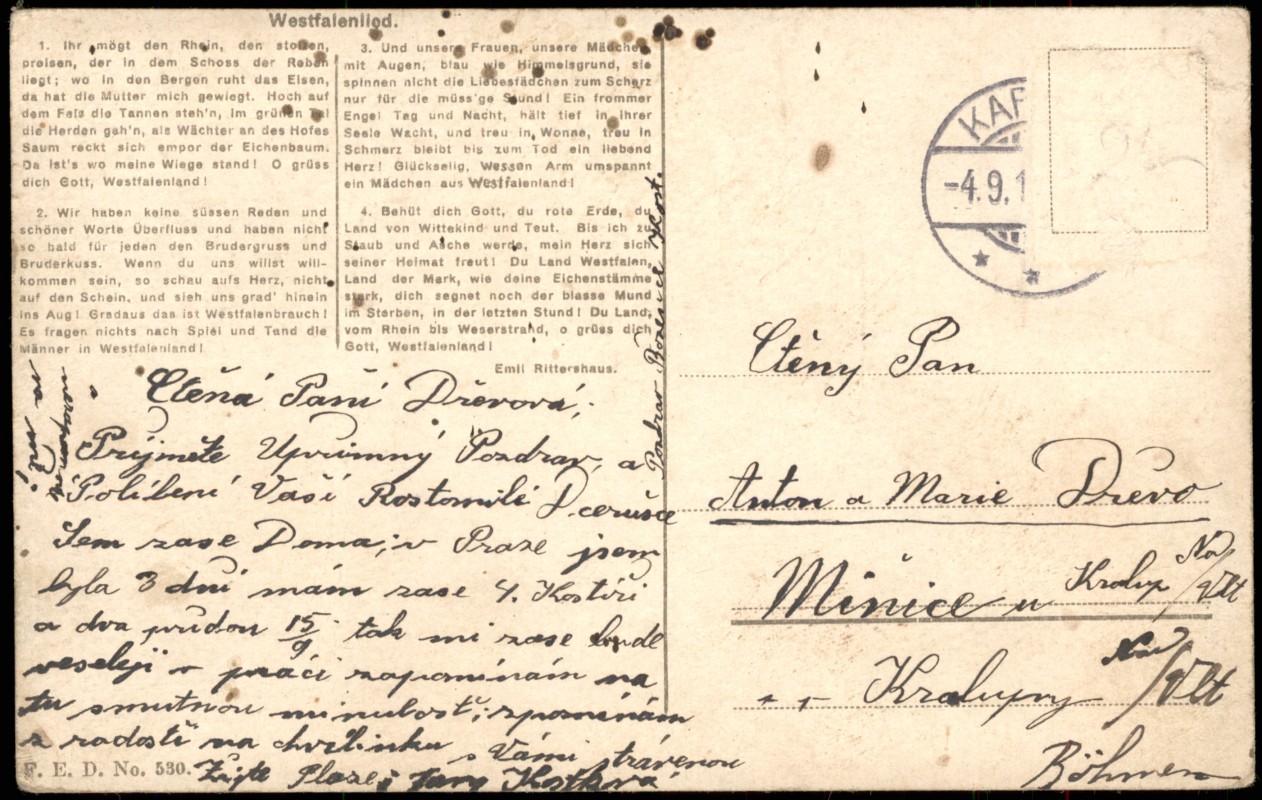 Westfalenlied.
1. Ihr mögt den Rhein, den stolzen,
preisen, der in dem Schoss der Reben
liegt; wo in den Bergen ruht das Eisen,
da hat die Mutter mich gewiegt. Hoch auf
dem Fels die Tannen steh'n, im grünen Tal
die Herden geh'n, als Wächter an des Hofes
Saum reckt sich empor der Eichenbaum.
Da ist's wo meine Wiege stand! O grüss
dich Gott, Westfalenland!
2. Wir haben keine süssen Reden und
schöner Worte Überfluss und haben nicht
so bald für jeden den Brudergruss und
Bruderkuss. Wenn du uns willst will-
kommen sein, so schau aufs Herz, nicht
auf den Schein, und sieh uns grad' hinein
ins Aug! Gradaus das ist Westfalenbrauch!
Es fragen nichts nach Spiel und Tand die
Männer in Westfalenland!
3. Und unsere Frauen, unsere Mädchen
mit Augen, blau wie Himmelsgrund, sie
spinnen nicht die Liebesfädchen zum Scherz
nur für die müss'ge Stund! Ein frommer
Engel Tag und Nacht, hält tief in ihrer
Seele Wacht, und treu in Wonne, treu in
Schmerz bleibt bis zum Tod ein liebend
Herz! Glückselig, wessen Arm umspannt
ein Mädchen aus Westfalenland!
4. Behüt dich Gott, du rote Erde, du
Land von Wittekind und Teut. Bis ich zu
Staub und Asche werde, mein Herz sich
seiner Heimat freut! Du Land Westfalen,
Land der Mark, wie deine Eichenstämme
stark, dich segnet noch der blasse Mund
im Sterben, in der letzten Stund! Du Land,
vom Rhein bis Weserstrand, o grüss dich
Gott, Westfalenland!
Emil Rittershaus.
Ctěná Paní Dřevová;
Prijměte Uprimný Pozdrav, a
Polibení Vaší Roztomilé D. cerušce
Sem zase Doma; v Praze jsem
byla 3 dni mám zase 4.
a dva pridou 15/9 tak mi zase bude
veseleji v práci zapominám na
tu smutnou minulost; zpominám
z radostí na chvilinku s Vámi trávenou
F. E. D. No. 530.
Kostková
Pozdrav
KAF
-4.9.1
Ctěný Pan
Anton a Marie Dřevo
Minice u Kralup Na/Vlt
" " Kralupy Nad/Vlt
Böhmen